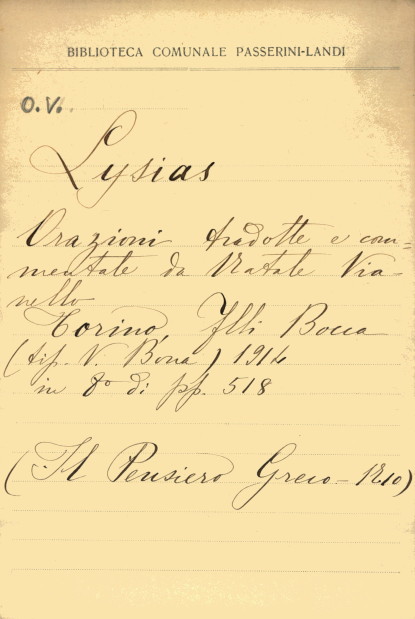 BIBLIOTECA COMUNALE PASSERINI-LANDI
O.V.
Lysias
Orazioni tradotte e com=
mentate da Natale Via-
nello
Torino, Flli Bocca
(tip. V. Bona) 1914
in 8° di pp. 518
(Il Pensiero Greco